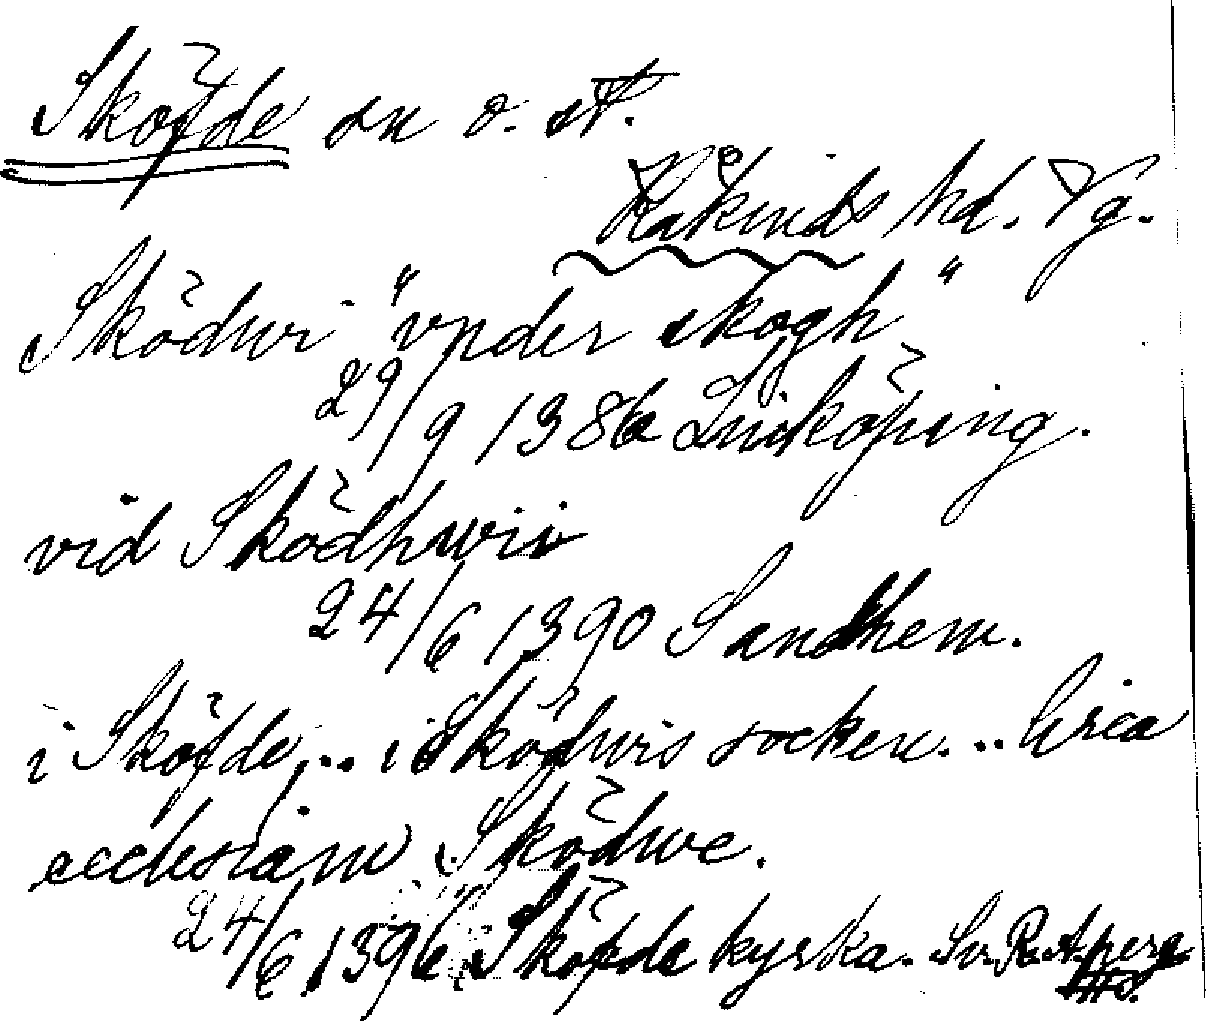 Sköfde sn o. st.
Kåkinds hd. Vg.
Sködwi "vnder skogh"
29/9 1386 Linköping.
vid Sködhwi
24/6 1390 Sandhem.
i Sköfde... i Sköfwis socken... Circa
ecclesiam Sködwe.
24/6 1396 Sköfde kyrka. Sv. R. A. perg.